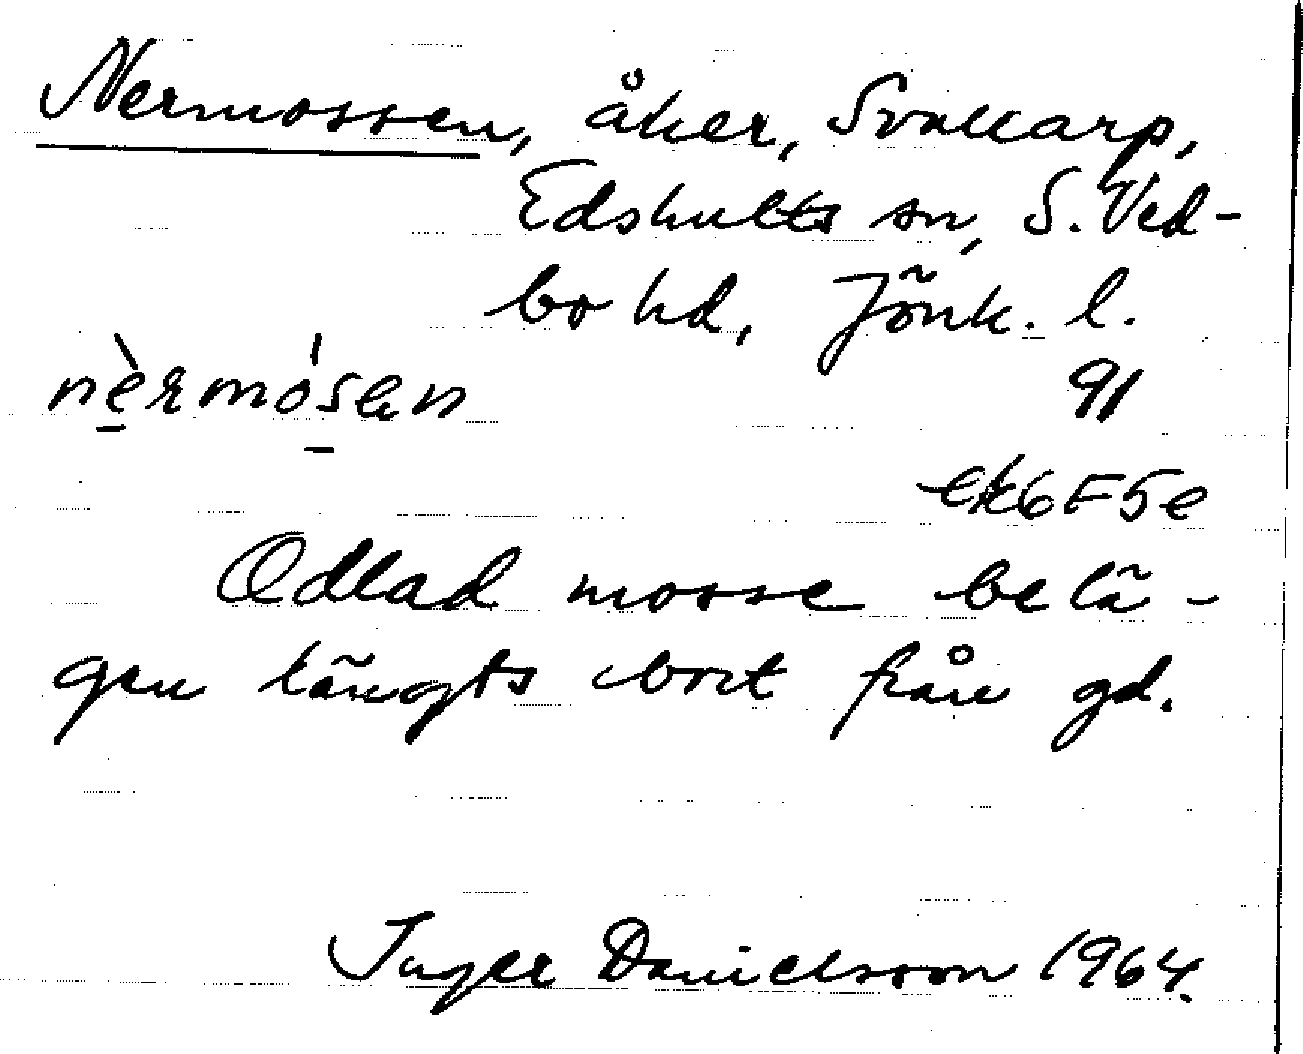 Nermossen, åker, Svakarp,
Edshults sn, S. Ved-
bo hd, Jönk. l.
nèrmósen 91
ek6F5e
Odlad mosse belä-
gen längts bort från gd.
Inger Danielsson 1964.